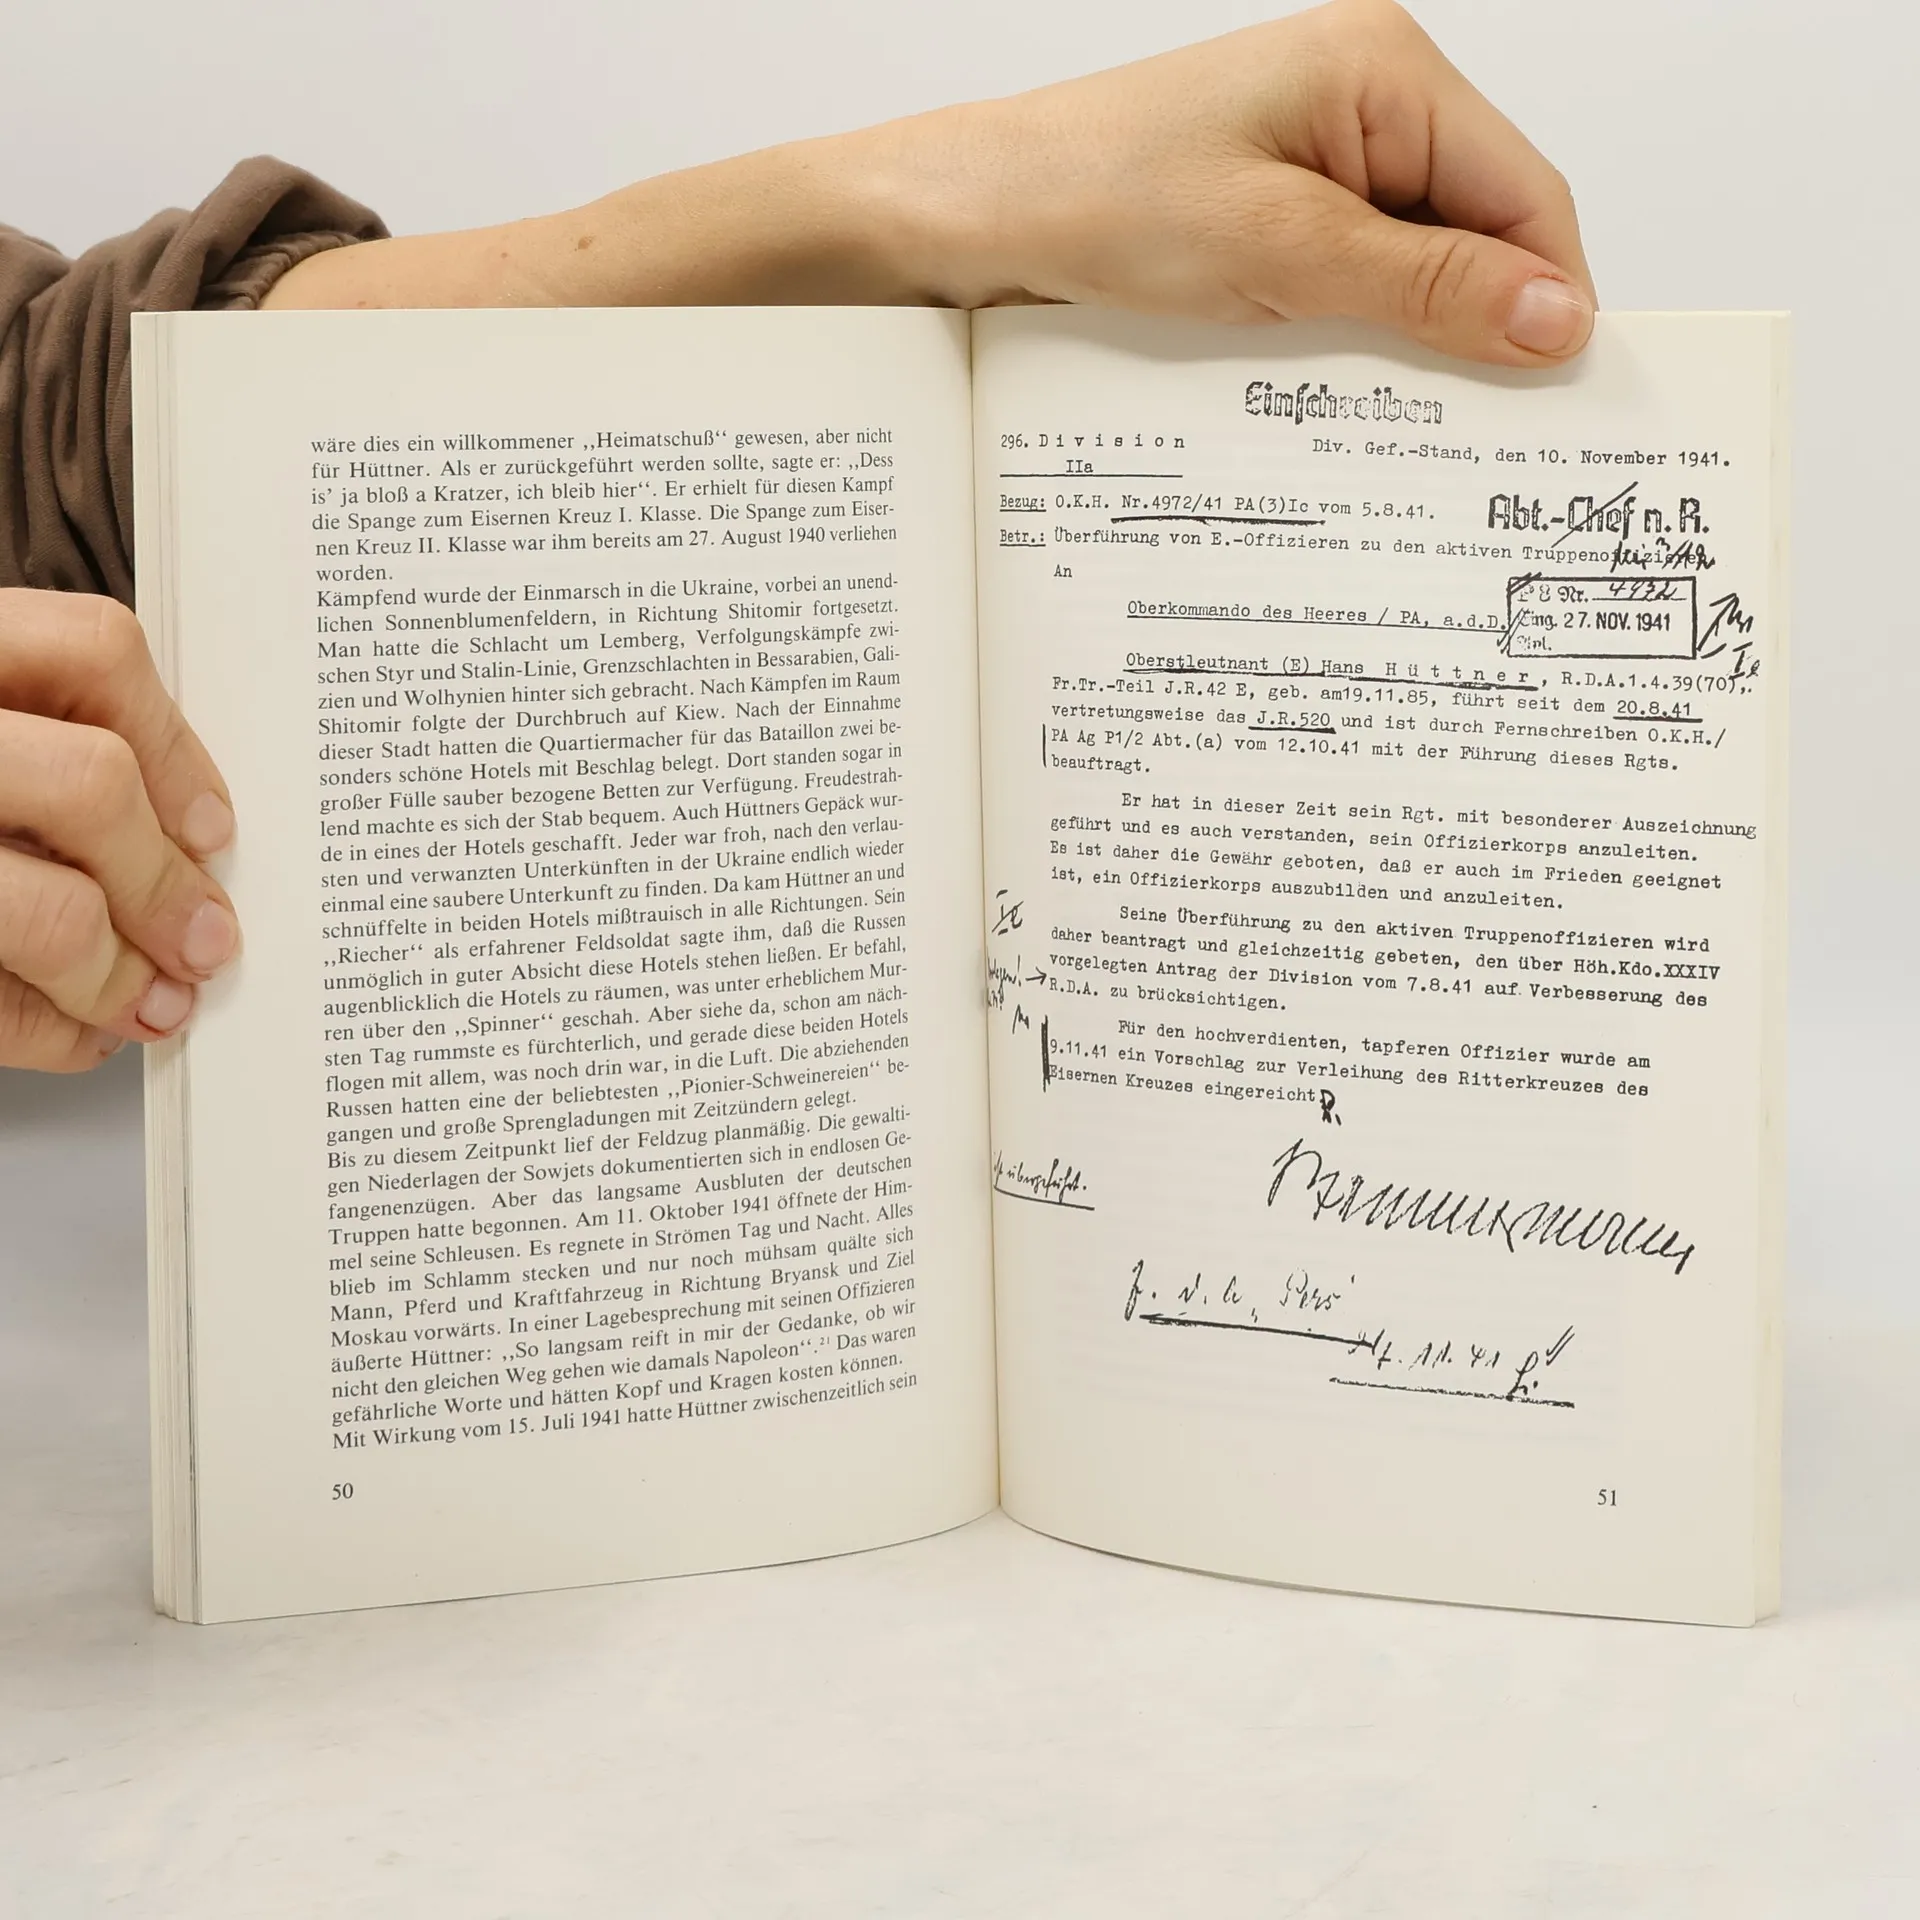 wäre dies ein willkommener ,,Heimatschuß“ gewesen, aber nicht
für Hüttner. Als er zurückgeführt werden sollte, sagte er: ,,Dess
is’ ja bloß a Kratzer, ich bleib hier“. Er erhielt für diesen Kampf
die Spange zum Eisernen Kreuz I. Klasse. Die Spange zum Eiser-
nen Kreuz II. Klasse war ihm bereits am 27. August 1940 verliehen
worden.
Kämpfend wurde der Einmarsch in die Ukraine, vorbei an unend-
lichen Sonnenblumenfeldern, in Richtung Shitomir fortgesetzt.
Man hatte die Schlacht um Lemberg, Verfolgungskämpfe zwi-
schen Styr und Stalin-Linie, Grenzschlachten in Bessarabien, Gali-
zien und Wolhynien hinter sich gebracht. Nach Kämpfen im Raum
Shitomir folgte der Durchbruch auf Kiew. Nach der Einnahme
dieser Stadt hatten die Quartiermacher für das Bataillon zwei be-
sonders schöne Hotels mit Beschlag belegt. Dort standen sogar in
großer Fülle sauber bezogene Betten zur Verfügung. Freudestrah-
lend machte es sich der Stab bequem. Auch Hüttners Gepäck wur-
de in eines der Hotels geschafft. Jeder war froh, nach den verlau-
sten und verwanzten Unterkünften in der Ukraine endlich wieder
einmal eine saubere Unterkunft zu finden. Da kam Hüttner an und
schnüffelte in beiden Hotels mißtrauisch in alle Richtungen. Sein
,,Riecher“ als erfahrener Feldsoldat sagte ihm, daß die Russen
unmöglich in guter Absicht diese Hotels stehen ließen. Er befahl,
augenblicklich die Hotels zu räumen, was unter erheblichem Mur-
ren über den ,,Spinner“ geschah. Aber siehe da, schon am näch-
sten Tag rummste es fürchterlich, und gerade diese beiden Hotels
flogen mit allem, was noch drin war, in die Luft. Die abziehenden
Russen hatten eine der beliebtesten ,,Pionier-Schweinereien“ be-
gangen und große Sprengladungen mit Zeitzündern gelegt.
Bis zu diesem Zeitpunkt lief der Feldzug planmäßig. Die gewalti-
gen Niederlagen der Sowjets dokumentierten sich in endlosen Ge-
fangenenzügen. Aber das langsame Ausbluten der deutschen
Truppen hatte begonnen. Am 11. Oktober 1941 öffnete der Him-
mel seine Schleusen. Es regnete in Strömen Tag und Nacht. Alles
blieb im Schlamm stecken und nur noch mühsam quälte sich
Mann, Pferd und Kraftfahrzeug in Richtung Bryansk und Ziel
Moskau vorwärts. In einer Lagebesprechung mit seinen Offizieren
äußerte Hüttner: ,,So langsam reift in mir der Gedanke, ob wir
nicht den gleichen Weg gehen wie damals Napoleon“.²¹ Das waren
gefährliche Worte und hätten Kopf und Kragen kosten können.
Mit Wirkung vom 15. Juli 1941 hatte Hüttner zwischenzeitlich sein
50
Einschreiben
296. Division
IIa
Div. Gef.-Stand, den 10. November 1941.
Bezug: O.K.H. Nr.4972/41 PA(3)Ic vom 5.8.41.
Abt.-Chef n. R.
Betr.: Überführung von E.-Offizieren zu den aktiven Truppenoffizieren
An
Nr. 4972
Oberkommando des Heeres / PA, a.d.D.
Eing. 27. NOV. 1941
Oberstleutnant (E) Hans Hüttner, R.D.A.1.4.39(70),
Fr.Tr.-Teil J.R.42 E, geb. am19.11.85, führt seit dem 20.8.41
vertretungsweise das J.R.520 und ist durch Fernschreiben O.K.H./
PA Ag P1/2 Abt.(a) vom 12.10.41 mit der Führung dieses Rgts.
beauftragt.
Er hat in dieser Zeit sein Rgt. mit besonderer Auszeichnung
geführt und es auch verstanden, sein Offizierkorps anzuleiten.
Es ist daher die Gewähr geboten, daß er auch im Frieden geeignet
ist, ein Offizierkorps auszubilden und anzuleiten.
Seine Überführung zu den aktiven Truppenoffizieren wird
daher beantragt und gleichzeitig gebeten, den über Höh.Kdo.XXXIV
vorgelegten Antrag der Division vom 7.8.41 auf Verbesserung des
R.D.A. zu brücksichtigen.
Für den hochverdienten, tapferen Offizier wurde am
9.11.41 ein Vorschlag zur Verleihung des Ritterkreuzes des
Eisernen Kreuzes eingereicht.
übergeführt.
z. d. A. Pers
11. 41
51